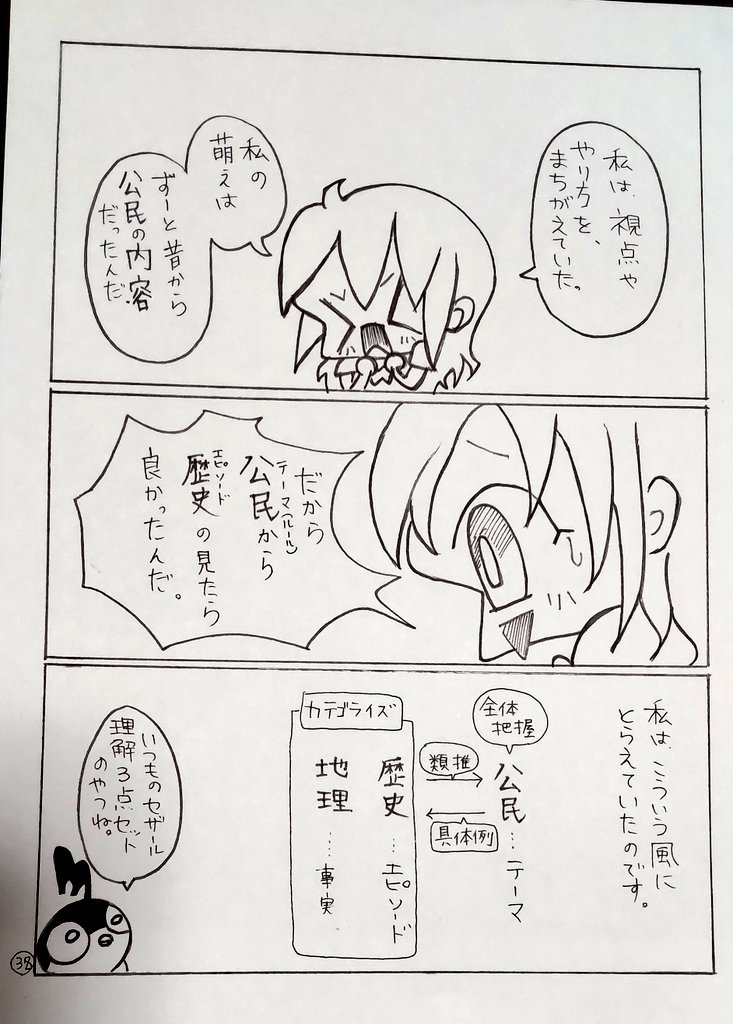 私は、視点や
やり方を、
まちがえていた。
私の
萌えは
ずーと昔から
公民の内容
だったんだ。
だから
公民から
テーマ(ルール)
歴史の見たら
エピソード
良かったんだ。
私は、こういう風に
とらえていたのです。
全体
把握
公民…テーマ
類推
具体例
カテゴライズ
歴史…エピソード
地理…事実
いつものセザール
理解3点セット
のやつね。
38